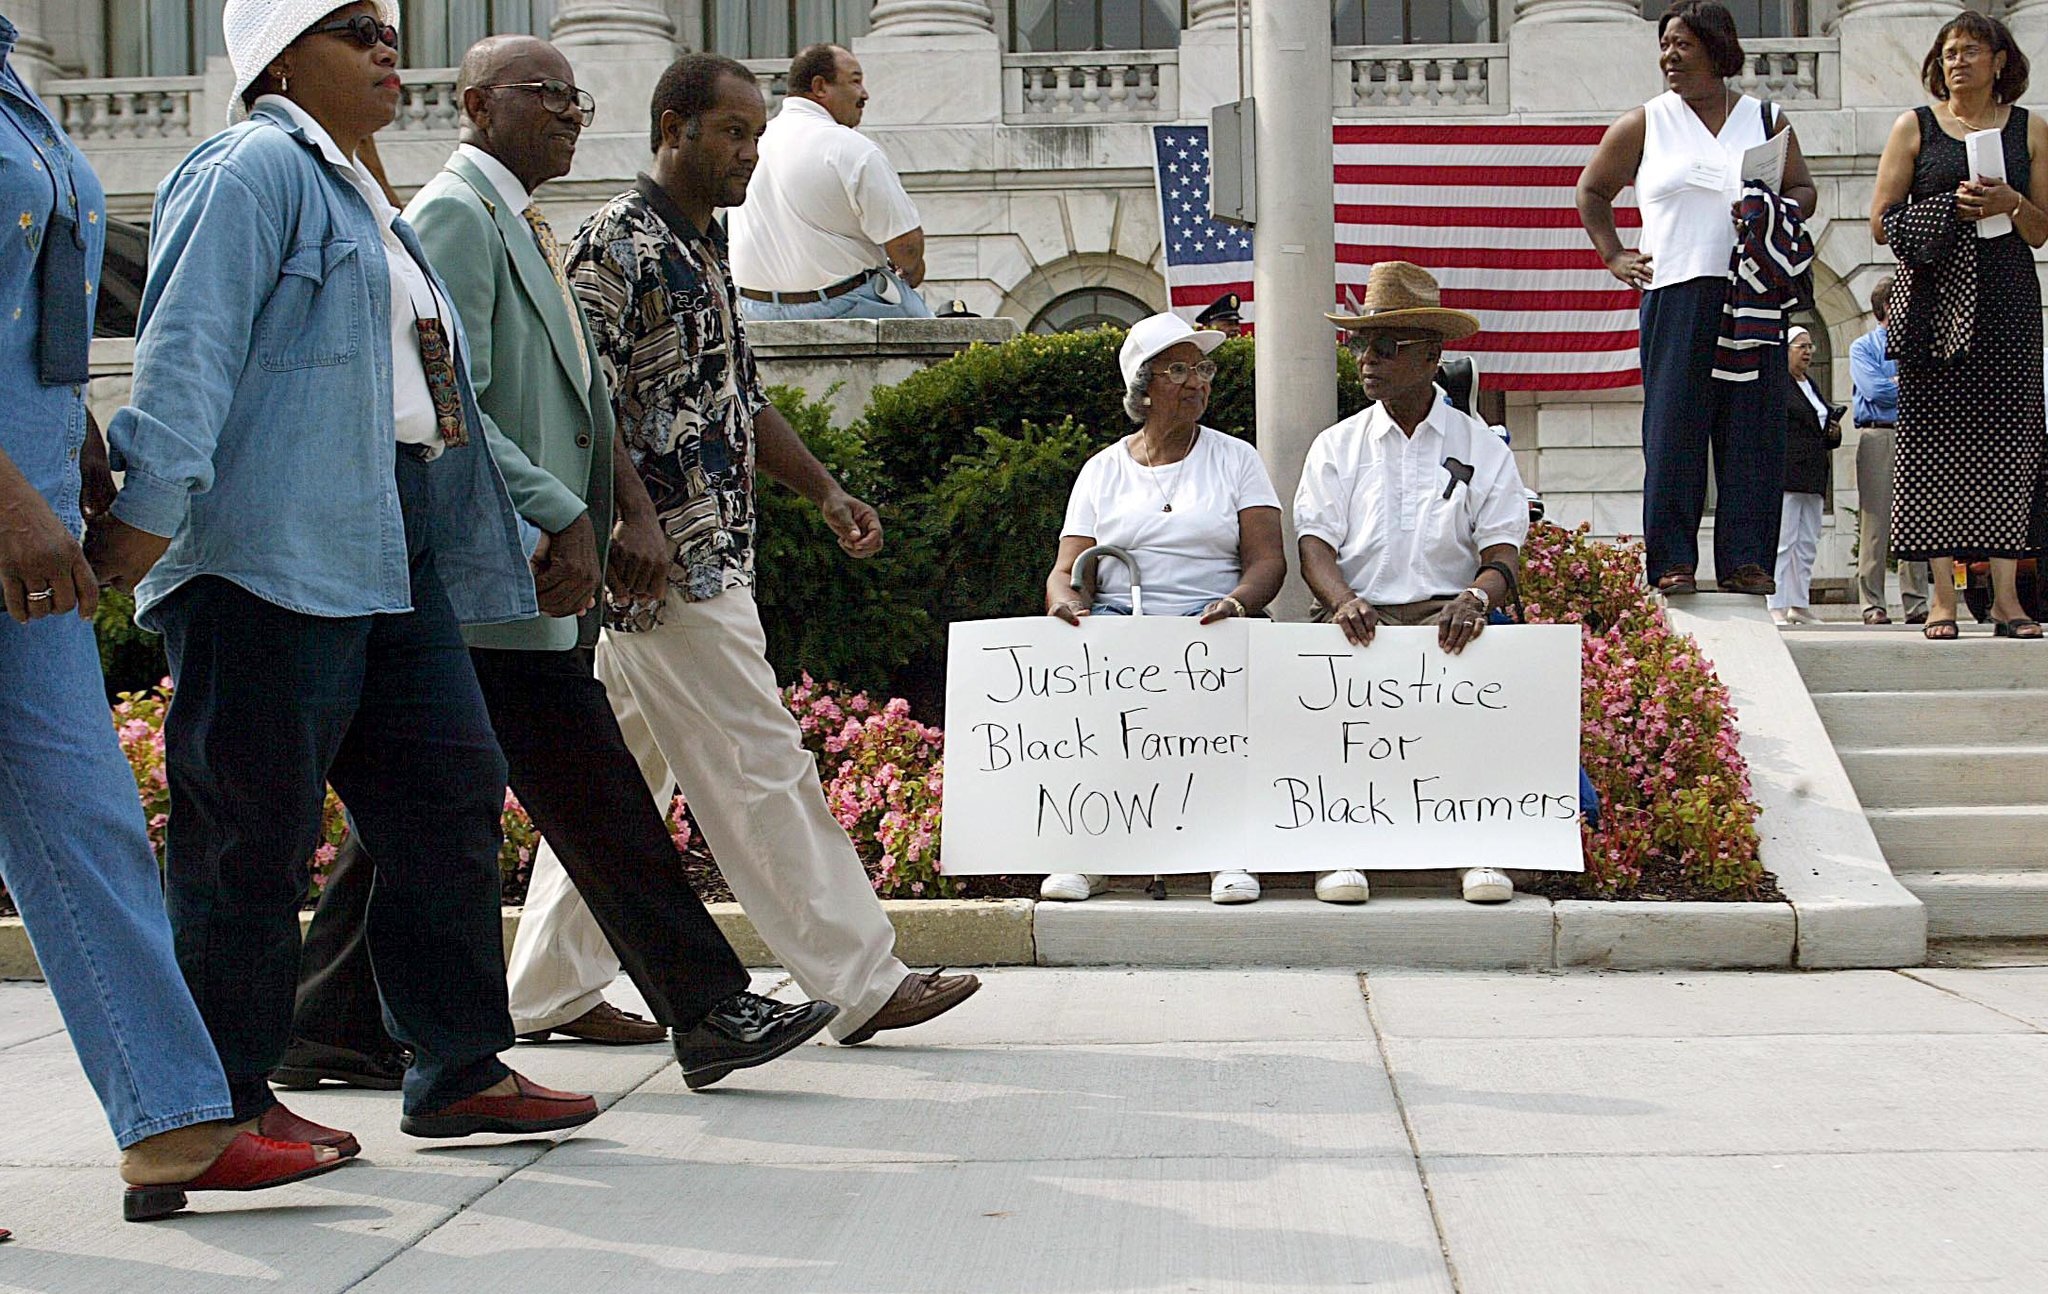 Justice for
Black Farmers
NOW!
Justice
For
Black Farmers